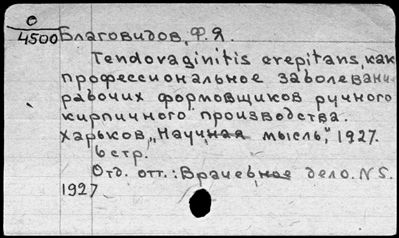 О
4500 Благовидов, Ф.Я.
Tendovaginitis crepitans, как
профессиональное заболевани
рабочих формовщиков ручного
кирпичного производства.
Харьков, "Научная мысль", 1927.
6 стр.
Отд. отт.: Врачебное дело. N 5.
1927